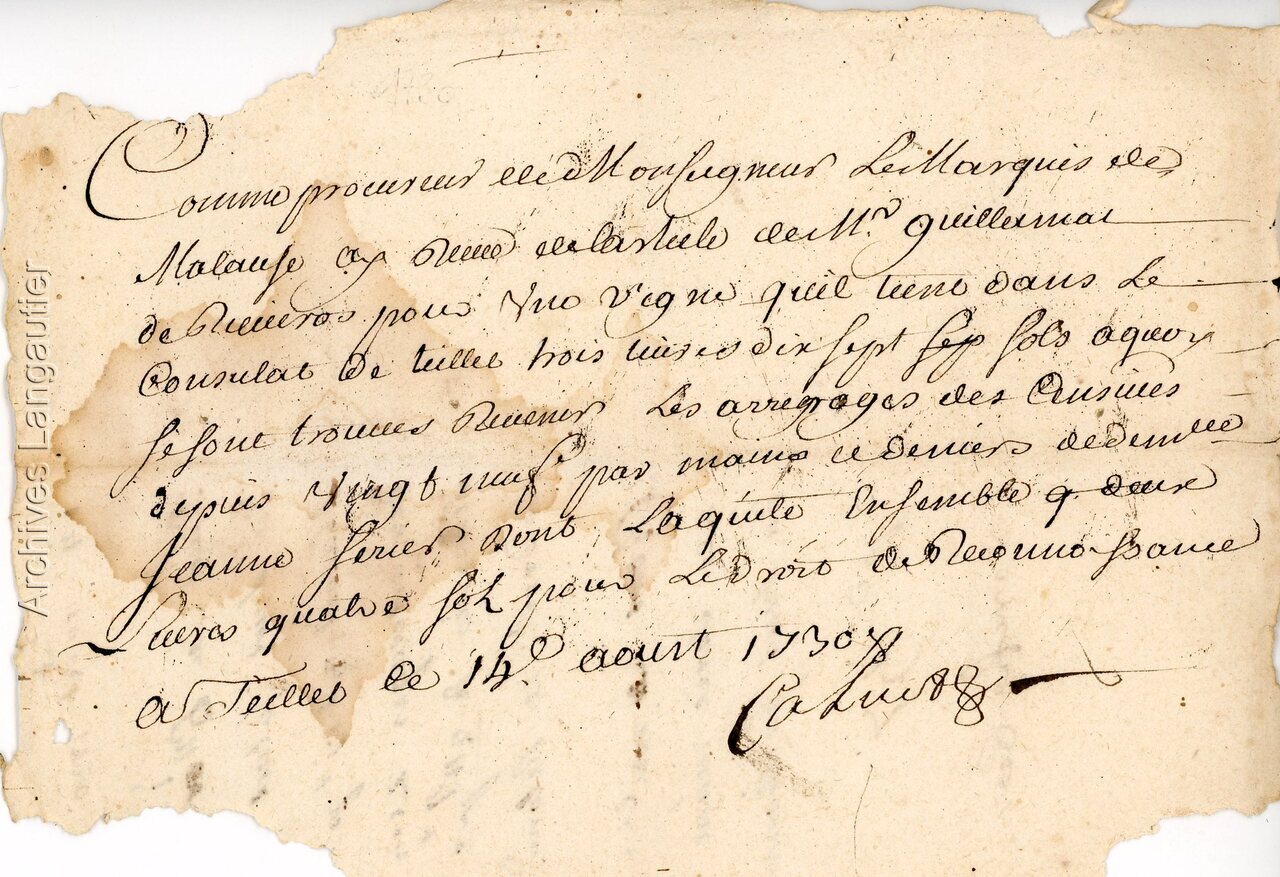 Comme procureur de Monseigneur Le Marquis de
Malause ay de Mr. Guillemat
de pour une vigne quil tient dans Le
Consulat de teillet trois livres dix sept sols aquoy
se sont trouvées Revenir Les arrerages des Censives
depuis vingt neuf par mains et deniers de
Jeanne dont Laquite Ensemble deux
Livres quatre sols pour Le Droit de Reconnoissance
A Teillet ce 14e aoust 1730
Archives Langautier